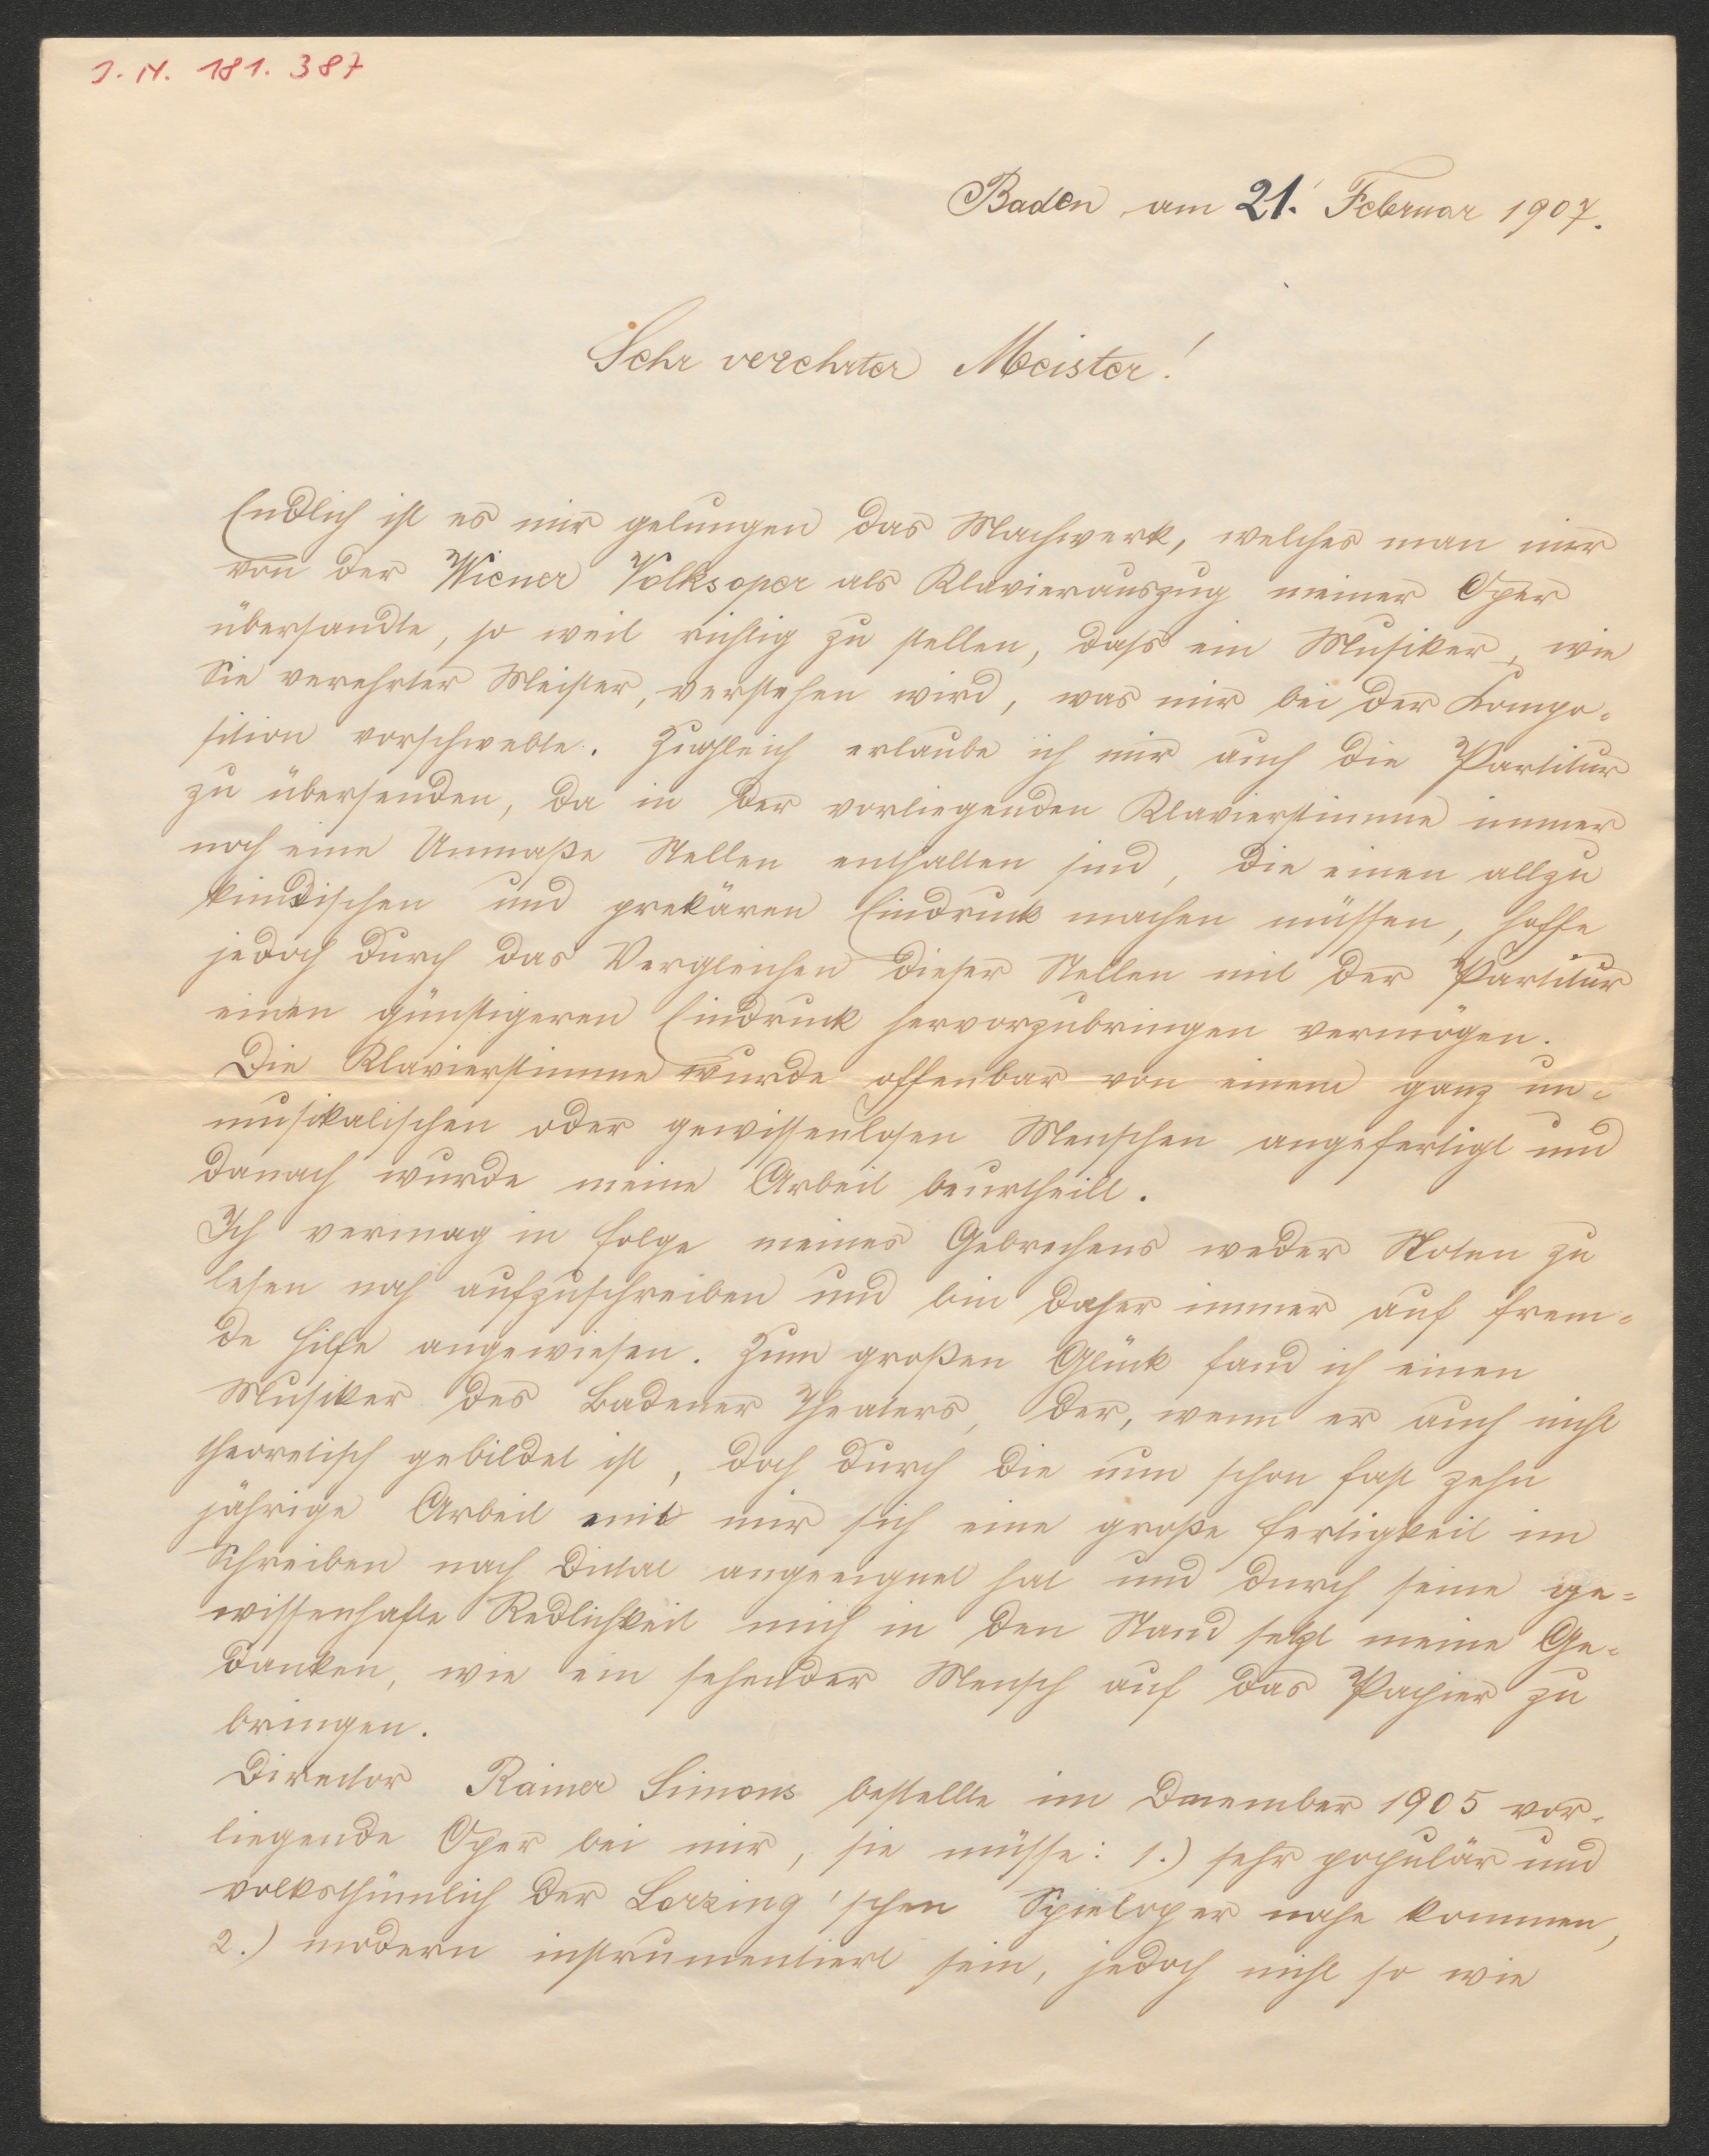 I. N. 181. 387
Baden am 21. Februar 1907.
Sehr verehrter Meister!
Endlich ist es mir gelungen das Machwerk, welches man mir
von der Wiener Volksoper als Klavierauszug meiner Oper
übersandte, so weit richtig zu stellen, dass ein Musiker, wie
Sie verehrter Meister, verstehen wird, was mir bei der Kompo-
sition vorschwebte. Zugleich erlaube ich mir auch die Partitur
zu übersenden, da in der vorliegenden Klavierstimme immer
noch eine Unmaße Stellen enthalten sind, die einen allzu
kindischen und prekären Eindruck machen müssen, hoffe
jedoch durch das Vergleichen dieser Stellen mit der Partitur
einen günstigeren Eindruck hervorzubringen vermögen.
Die Klavierstimme wurde offenbar von einem ganz un-
musikalischen oder gewissenlosen Menschen angefertigt und
danach wurde meine Arbeit beurtheilt.
Ich vermag in folge meines Gebrechens weder Noten zu
lesen noch aufzuschreiben und bin daher immer auf frem-
de Hilfe angewiesen. Zum großen Glück fand ich einen
Musiker des Badener Theaters, der, wenn er auch nicht
theoretisch gebildet ist, doch durch die nun schon fast zehn
jährige Arbeit mit mir sich eine große Fertigkeit im
Schreiben nach Dictat angeeignet hat und durch seine ge-
wissenhafte Redlichkeit mich in den Stand setzt meine Ge-
danken, wie ein sehender Mensch auf das Papier zu
bringen.
Director Rainer Simons bestellte im Dezember 1905 vor-
liegende Oper bei mir, sie müsse: 1.) sehr populär und
volksthümlich der Lorzing'schen Spieloper nahe kommen,
2.) modern instrumentiert sein, jedoch nicht so wie